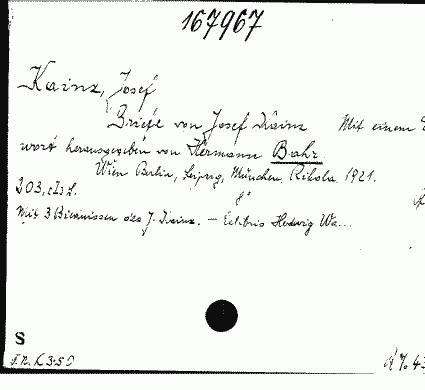 167967
Kainz, Josef
Briefe von Josef Kainz Mit einem
wort herausgegeben von Hermann Bahr.
Wien Berlin, Leipzig, München Rikola 1921.
203, S. 8°
Mit 3 Bildnissen des J. Kainz. — Exlibris Hedwig Wa...
S